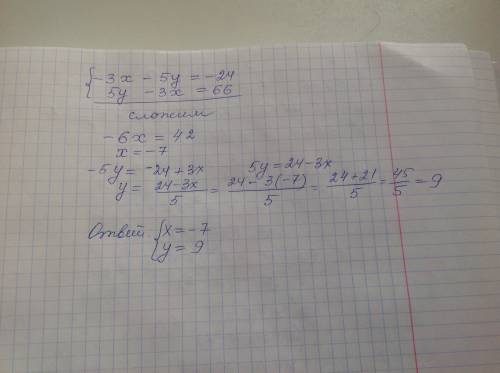 {-3x - 5y = -24
5y - 3x = 66
сложим
-6x = 42
x = -7
-5y = -24 + 3x 5y = 24 - 3x
y = \frac{24-3x}{5} = \frac{24-3(-7)}{5} = \frac{24+21}{5} = \frac{45}{5} = 9
Ответ {x = -7
y = 9